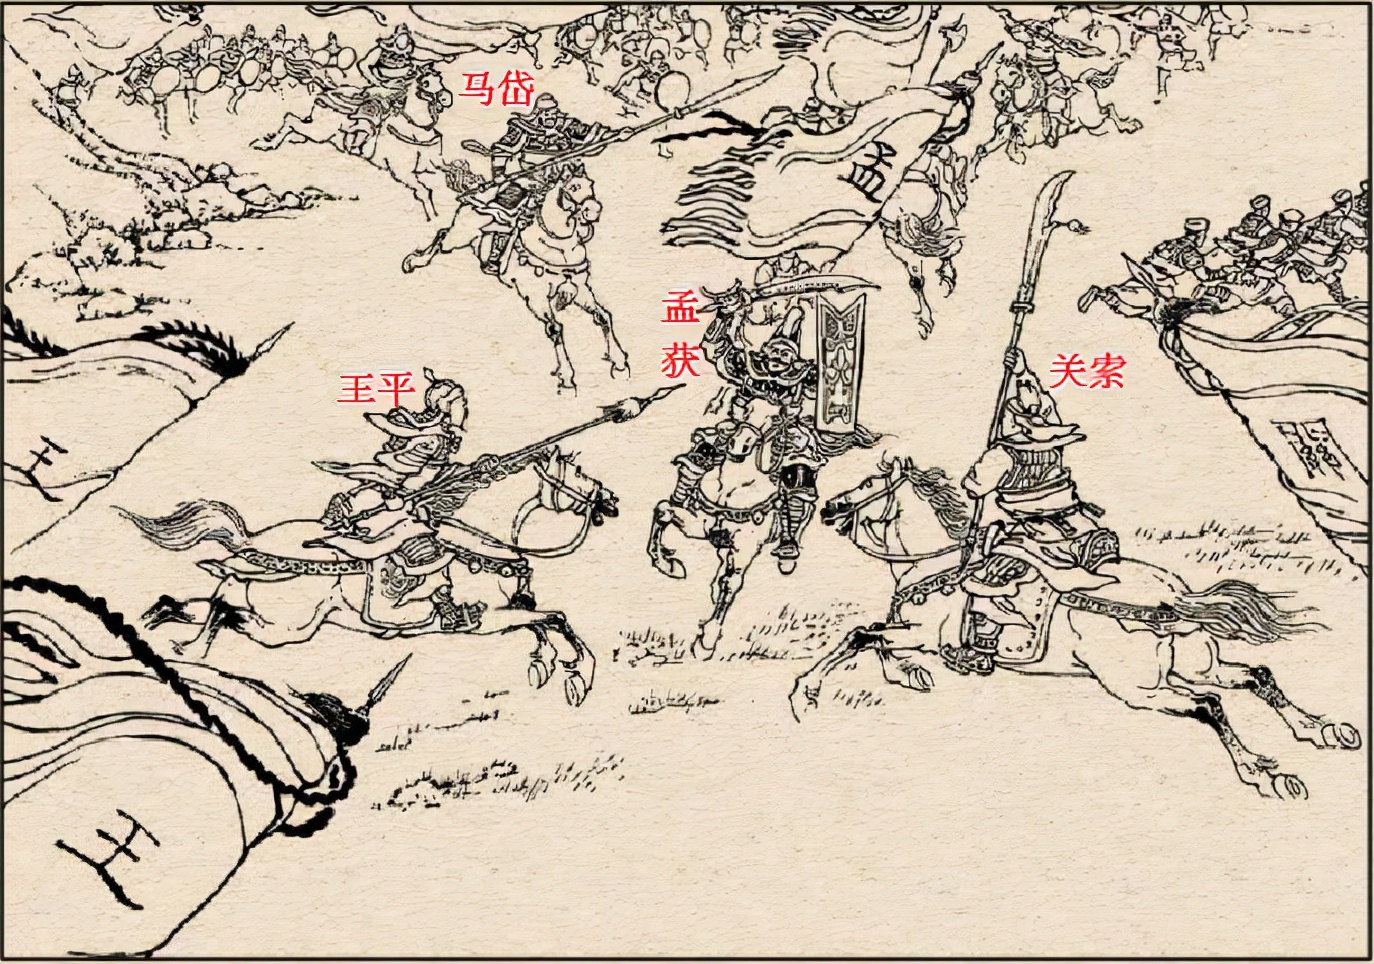 马岱
孟
孟
获
关索
王平
王
王